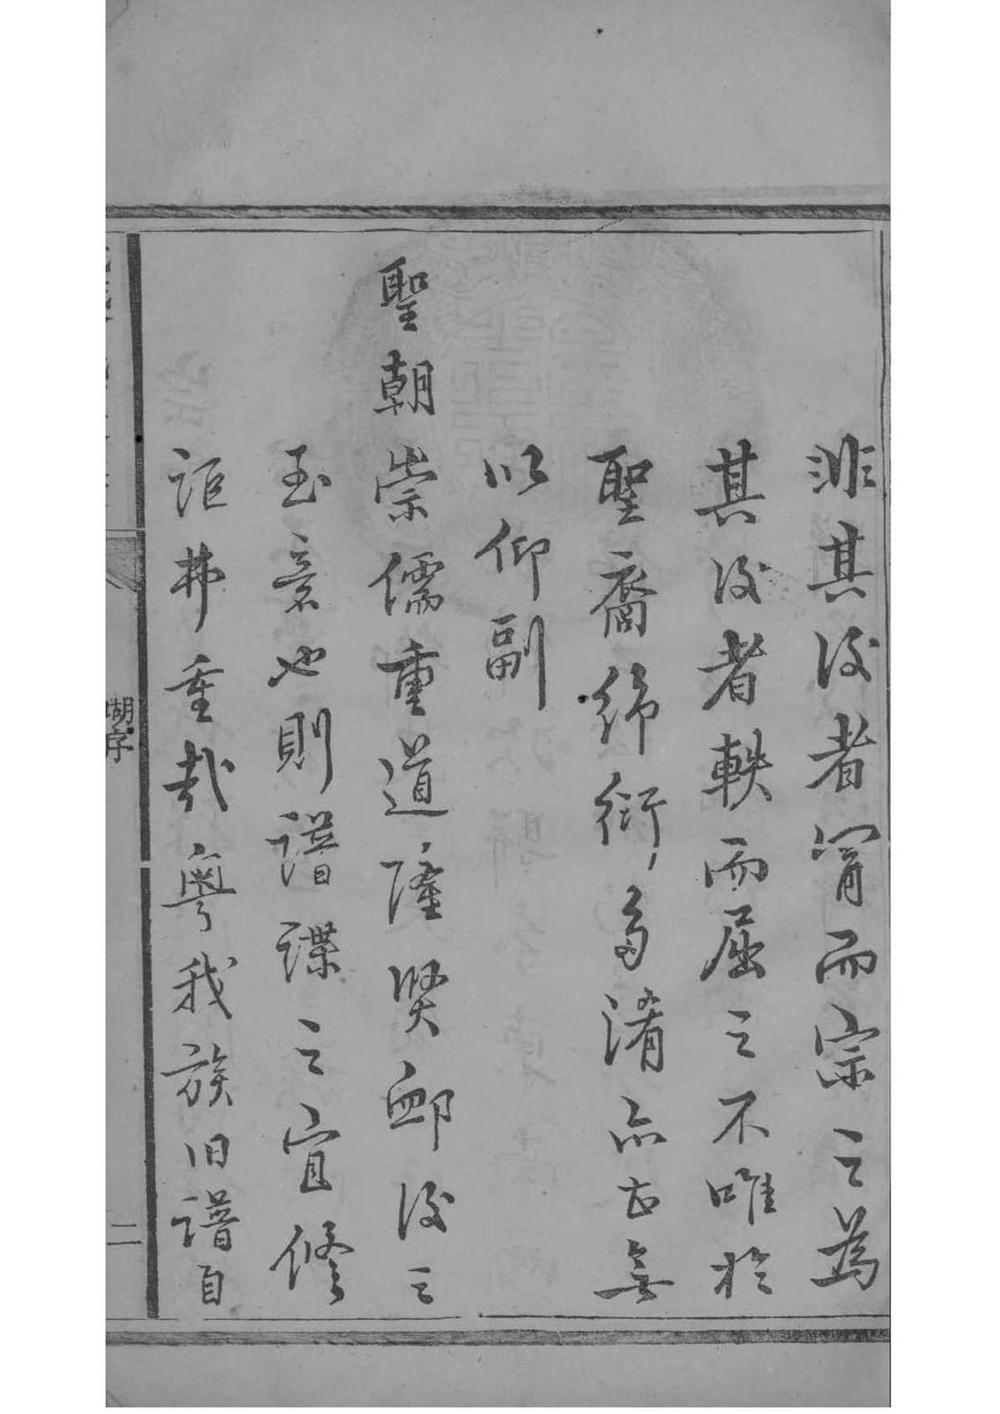 非其後者寗而宗之為
其後者軼而屈之不唯於
聖裔綿衍多淆亦且無
以仰副
聖朝崇儒重道隆賢卹後之
至意也則譜諜之宜修
詎弗重哉粵我族旧譜自
瑚字
二